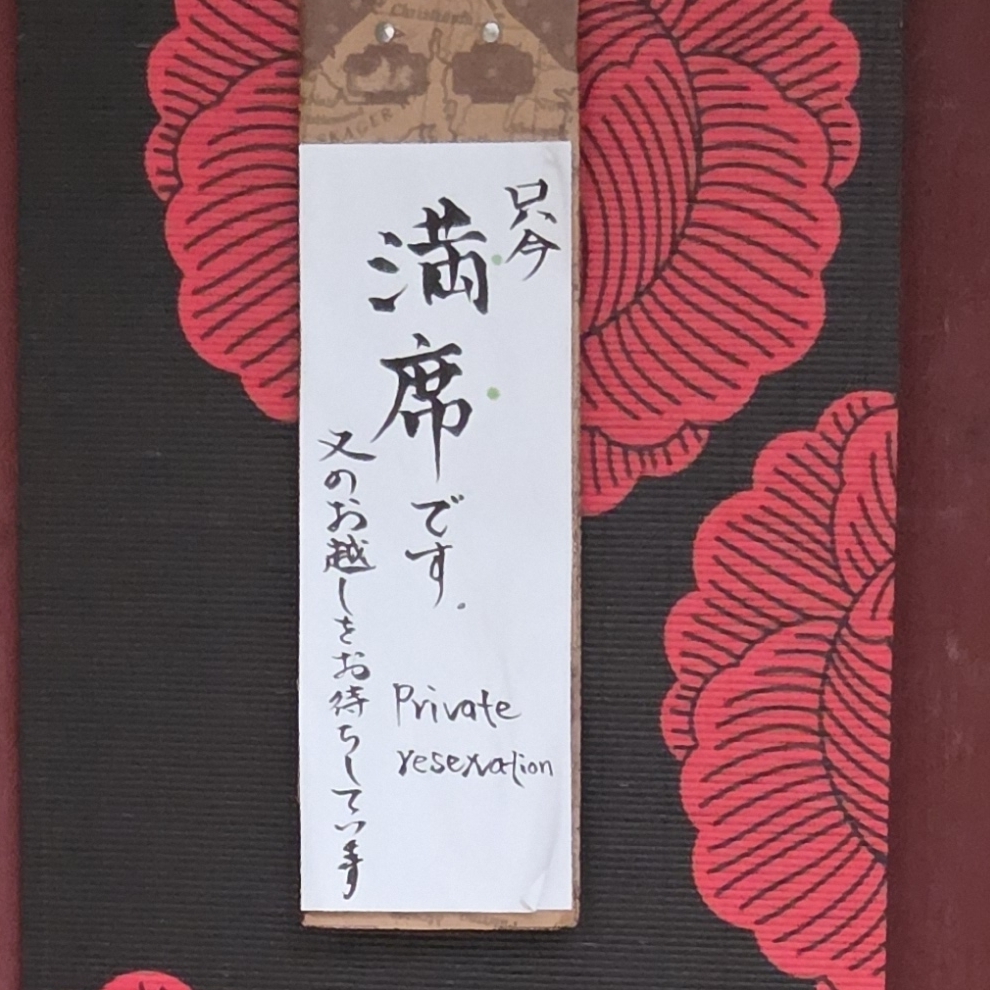 只今
満席です.
又のお越しをお待ちしています
Private
reservation